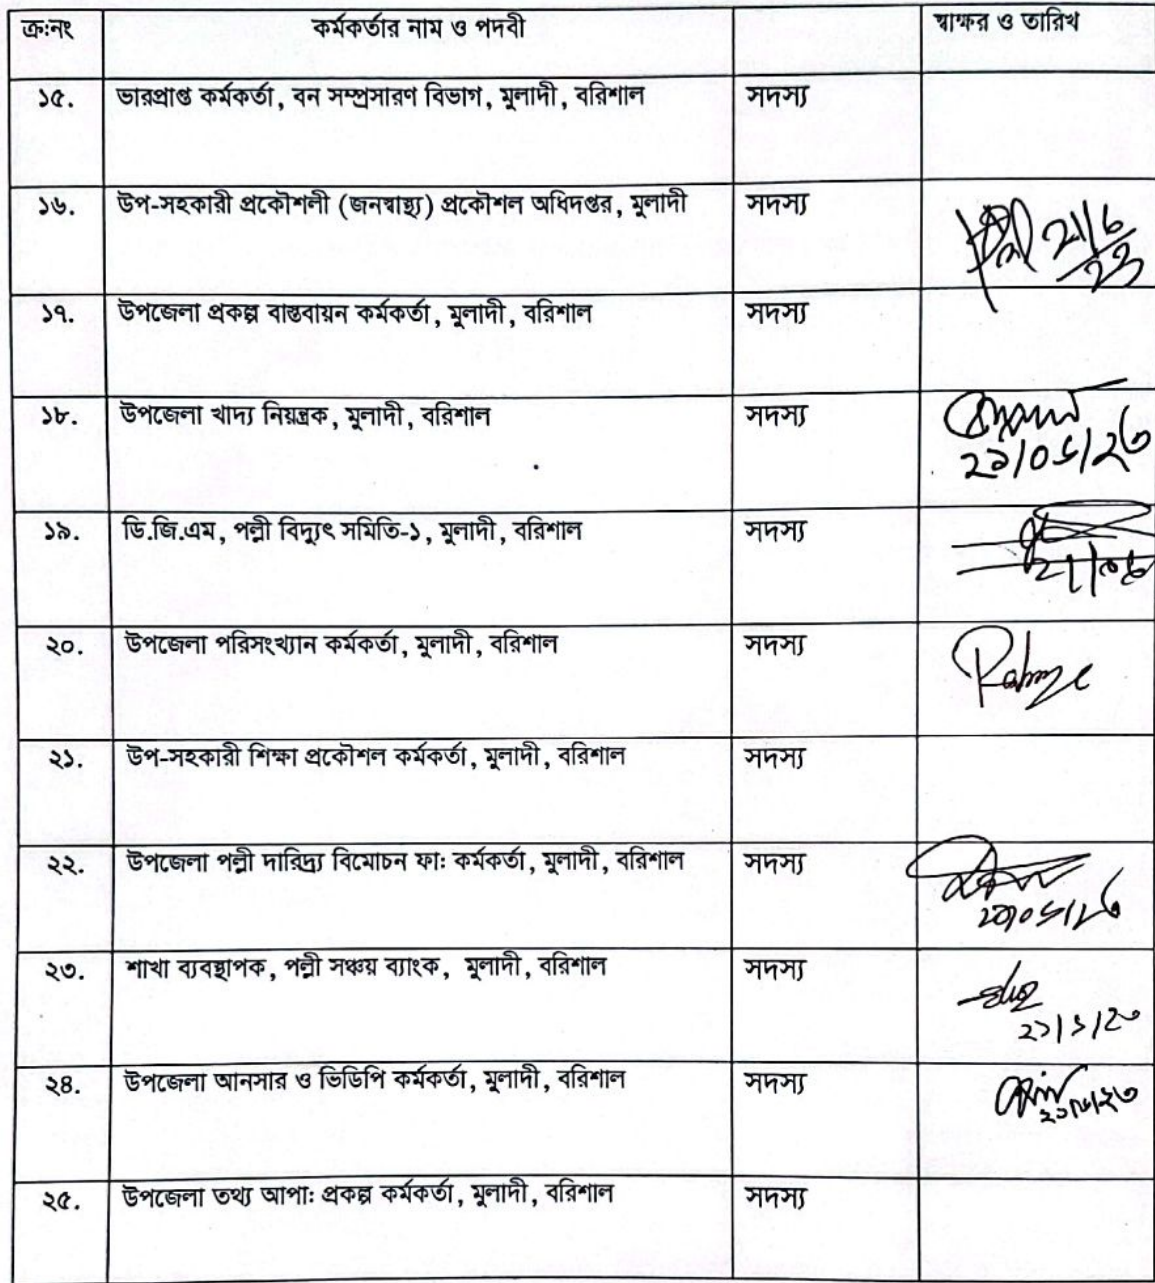 ক্র:নং কর্মকর্তার নাম ও পদবী স্বাক্ষর ও তারিখ
১৫. ভারপ্রাপ্ত কর্মকর্তা, বন সম্প্রসারণ বিভাগ, মুলাদী, বরিশাল সদস্য
১৬. উপ-সহকারী প্রকৌশলী (জনস্বাস্থ্য) প্রকৌশল অধিদপ্তর, মুলাদী সদস্য
১৭. উপজেলা প্রকল্প বাস্তবায়ন কর্মকর্তা, মুলাদী, বরিশাল সদস্য
১৮. উপজেলা খাদ্য নিয়ন্ত্রক, মুলাদী, বরিশাল সদস্য
২১/০৬/২৩
১৯. ডি.জি.এম, পল্লী বিদ্যুৎ সমিতি-১, মুলাদী, বরিশাল সদস্য
২০. উপজেলা পরিসংখ্যান কর্মকর্তা, মুলাদী, বরিশাল সদস্য
২১. উপ-সহকারী শিক্ষা প্রকৌশল কর্মকর্তা, মুলাদী, বরিশাল সদস্য
২২. উপজেলা পল্লী দারিদ্র্য বিমোচন ফা: কর্মকর্তা, মুলাদী, বরিশাল সদস্য
২৩. শাখা ব্যবস্থাপক, পল্লী সঞ্চয় ব্যাংক, মুলাদী, বরিশাল সদস্য
২৪. উপজেলা আনসার ও ভিডিপি কর্মকর্তা, মুলাদী, বরিশাল সদস্য
২৫. উপজেলা তথ্য আপা: প্রকল্প কর্মকর্তা, মুলাদী, বরিশাল সদস্য